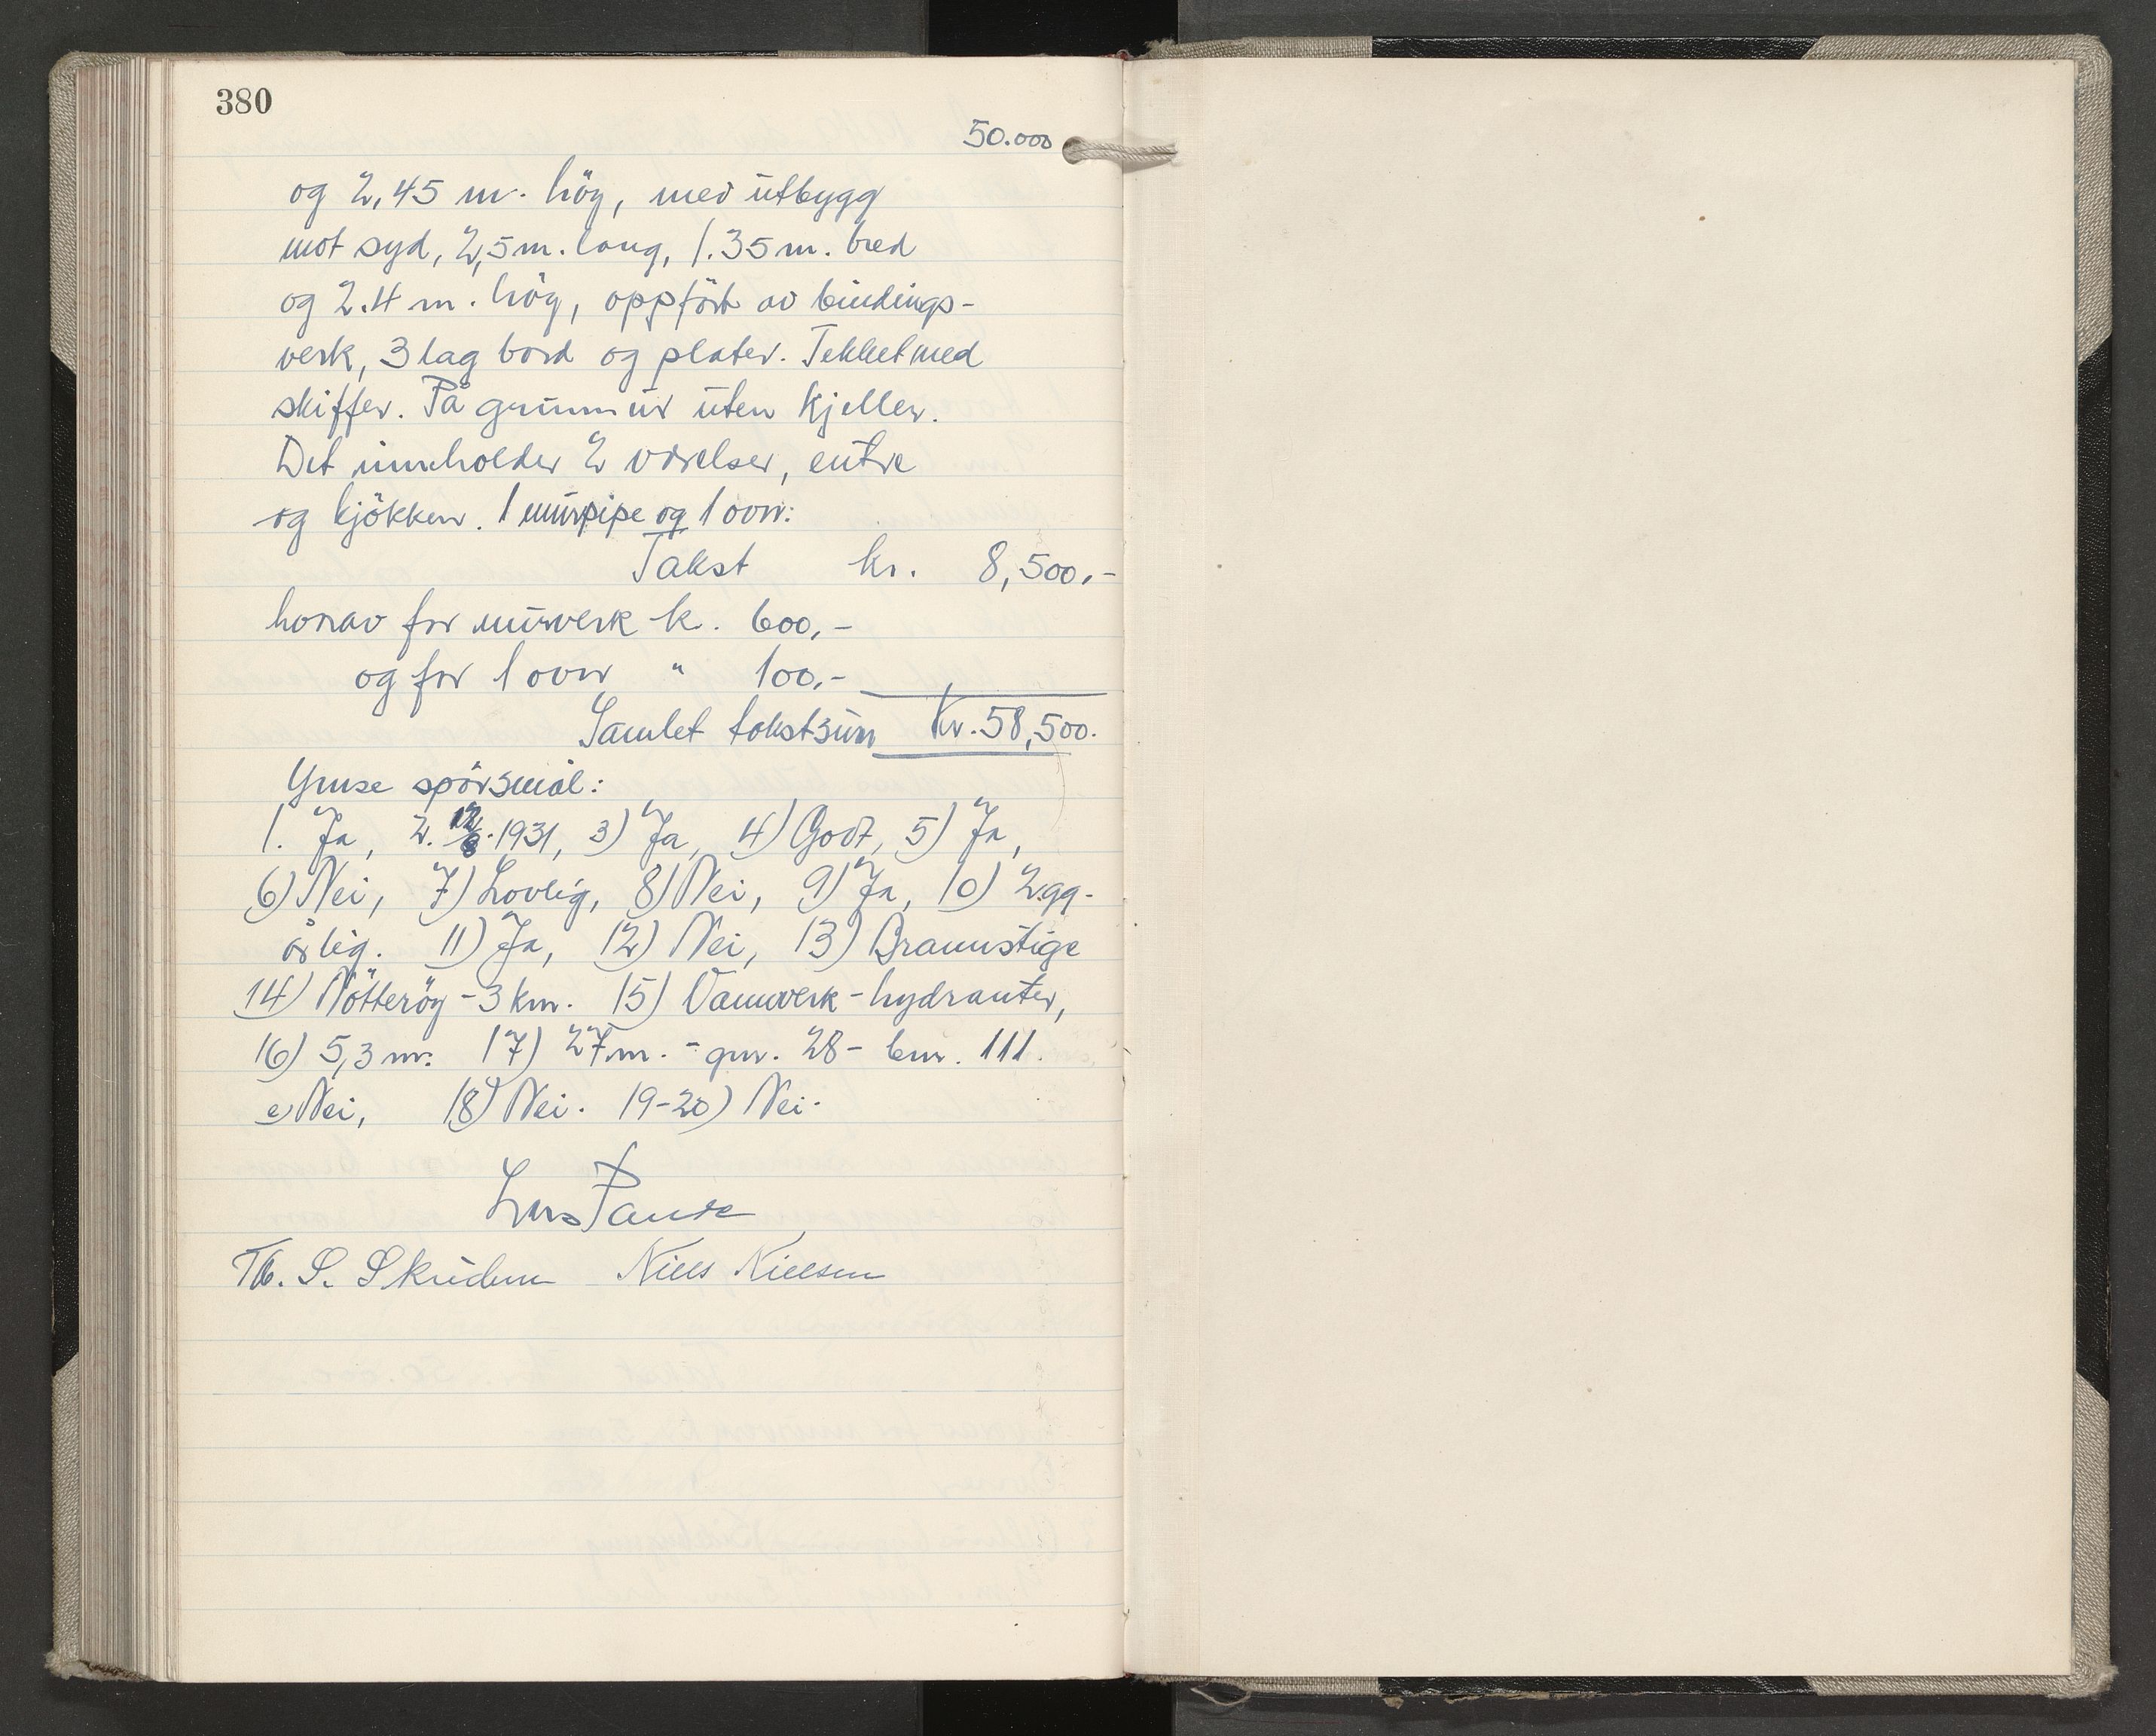 380
50.000
og 2,45 m. höy, med utbygg
mot syd, 2,5 m. lang, 1.35 m. bred
og 2.4 m. höy, oppfört av bindings-
verk, 3 lag bord og plater. Tekket med
skiffer. På grunnmur uten kjeller.
Det inneholder 2 værelser, entre
og kjökken. 1 murpipe og 1 ovn:
Takst kr. 8,500.-
hvorav for murverk k. 600,-
og for 1 ovn " 100,-
Samlet takstsum Kr. 58,500.
spörsmål:
1. Ja, 2. 12/8.1931, 3) Ja, 4) Godt, 5) Ja,
6) Nei, 7) Lovlig, 8) Nei, 9) Ja, 10) 2 gg.
årlig. 11) Ja, 12) Nei, 13) Brannstige
14) Nötteröy - 3 km. 15) Vannverk - hydranter,
16) 5,3 m. 17) 27 m. - gnr. 28 - bnr. 111.
e) Nei, 18) Nei. 19-20) Nei.
Th. S. Niels Nielsen